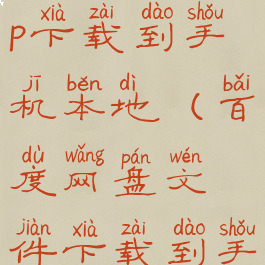 xià zài dào shǒu
P下载到手
jī běn dì bǎi
机本地（百
dù wǎng pán wén
度网盘文
jiàn xià zài dào shǒu
件下载到手